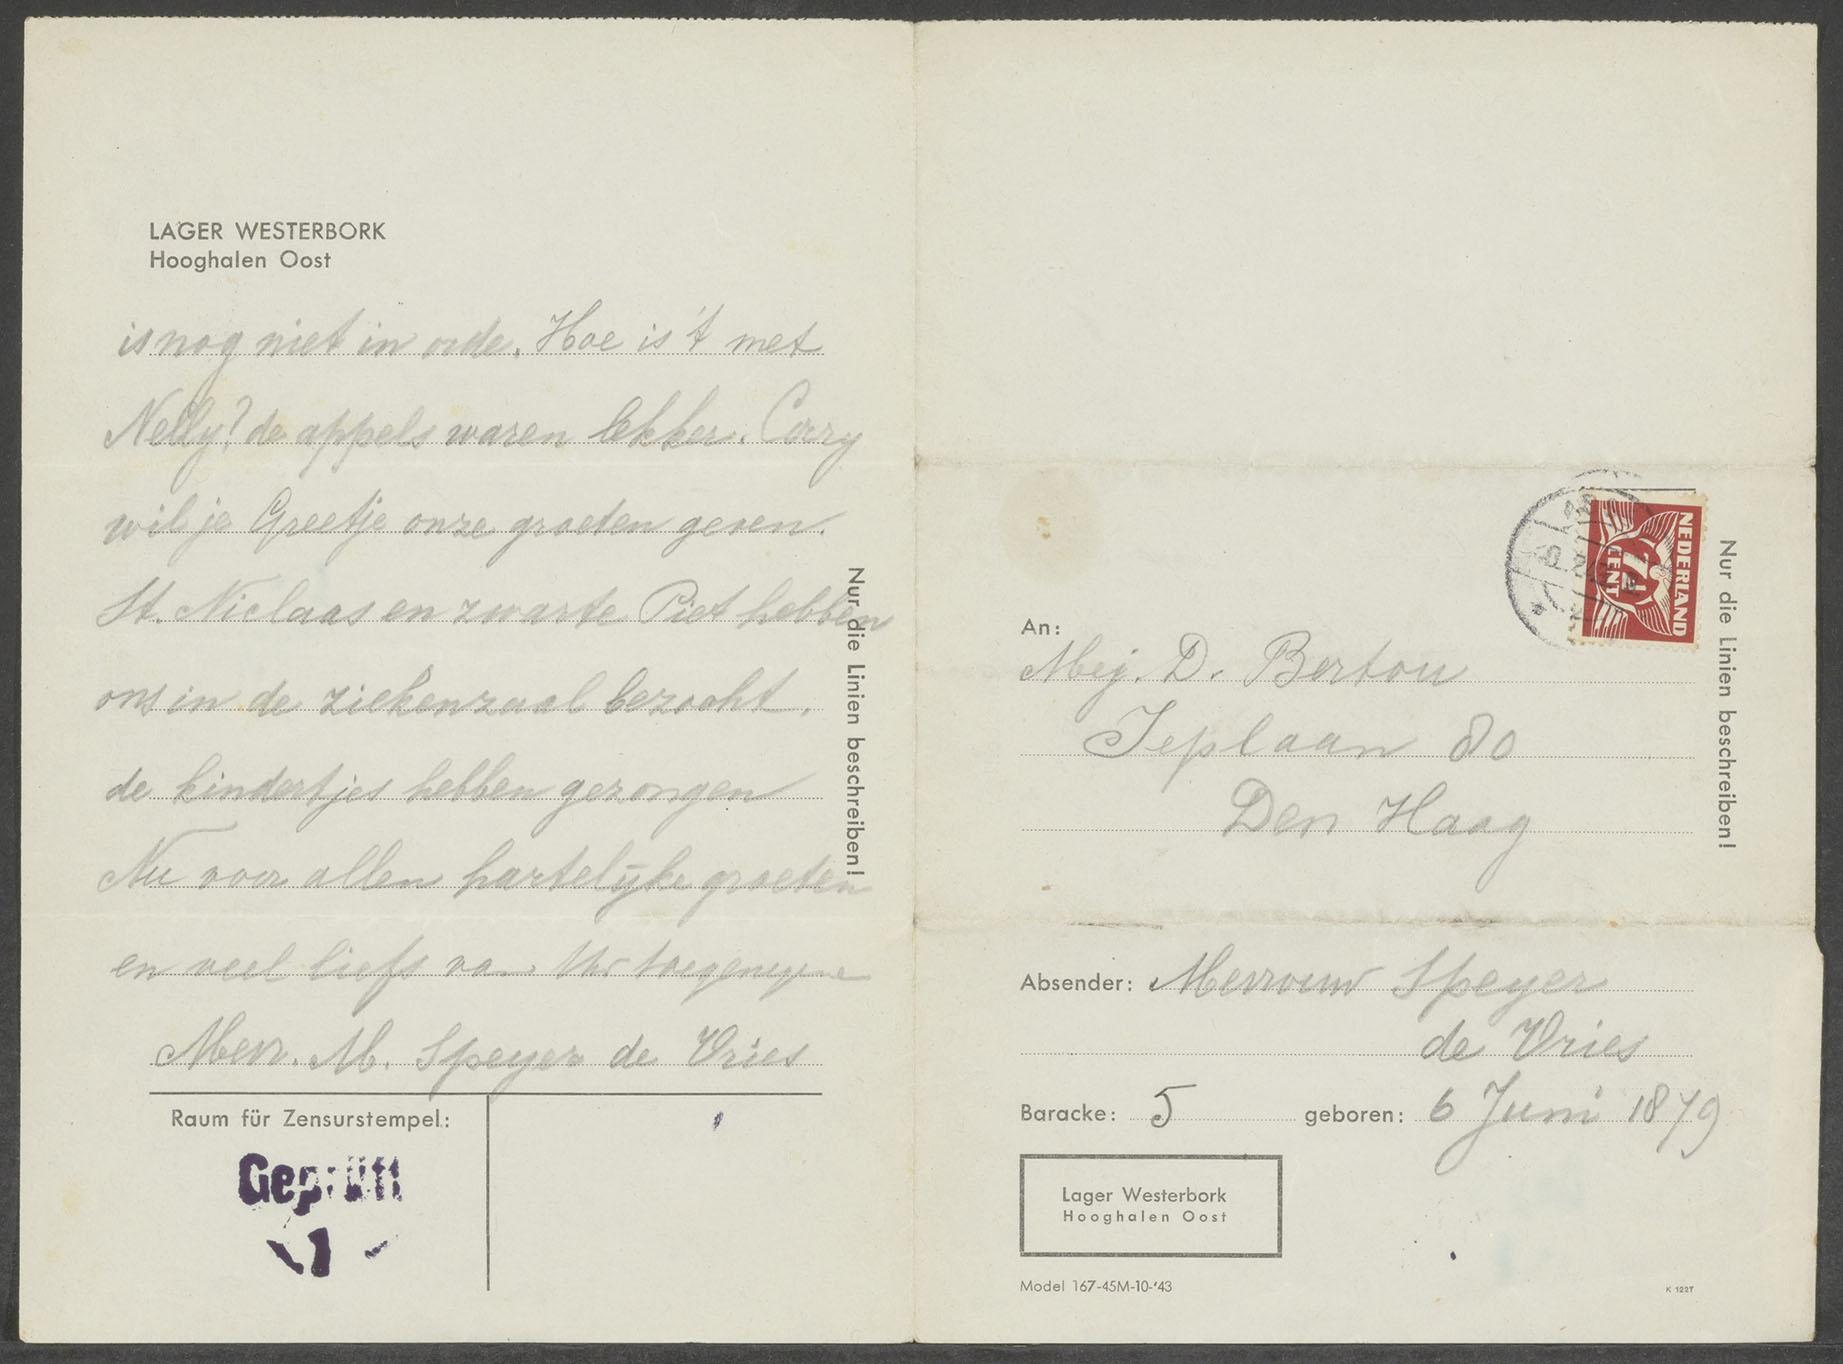 LAGER WESTERBORK
Hooghalen Oost
is nog niet in orde. Hoe is 't met
Nelly? de appels waren lekker. Corry
wil je Greetje onze groeten geven.
St. Niclaas en zwarte Piet hebben
ons in de ziekenzaal bezocht.
de kindertjes hebben gezongen
Nu voor allen hartelijke groeten
en veel liefs van Uw toegenegene
Mevr. M. Speyer de Vries
Nur die Linien beschreiben!
Raum für Zensurstempel:
Geprüft
1
NEDERLAND
7½
CENT
An:
Mej. D. Bertou
Ieplaan 80
Den Haag
Nur die Linien beschreiben!
Absender: Mevrouw Speyer
de Vries
Baracke: 5 geboren: 6 Juni 1879
Lager Westerbork
Hooghalen Oost
Model 167-45M-10-'43
K 1227